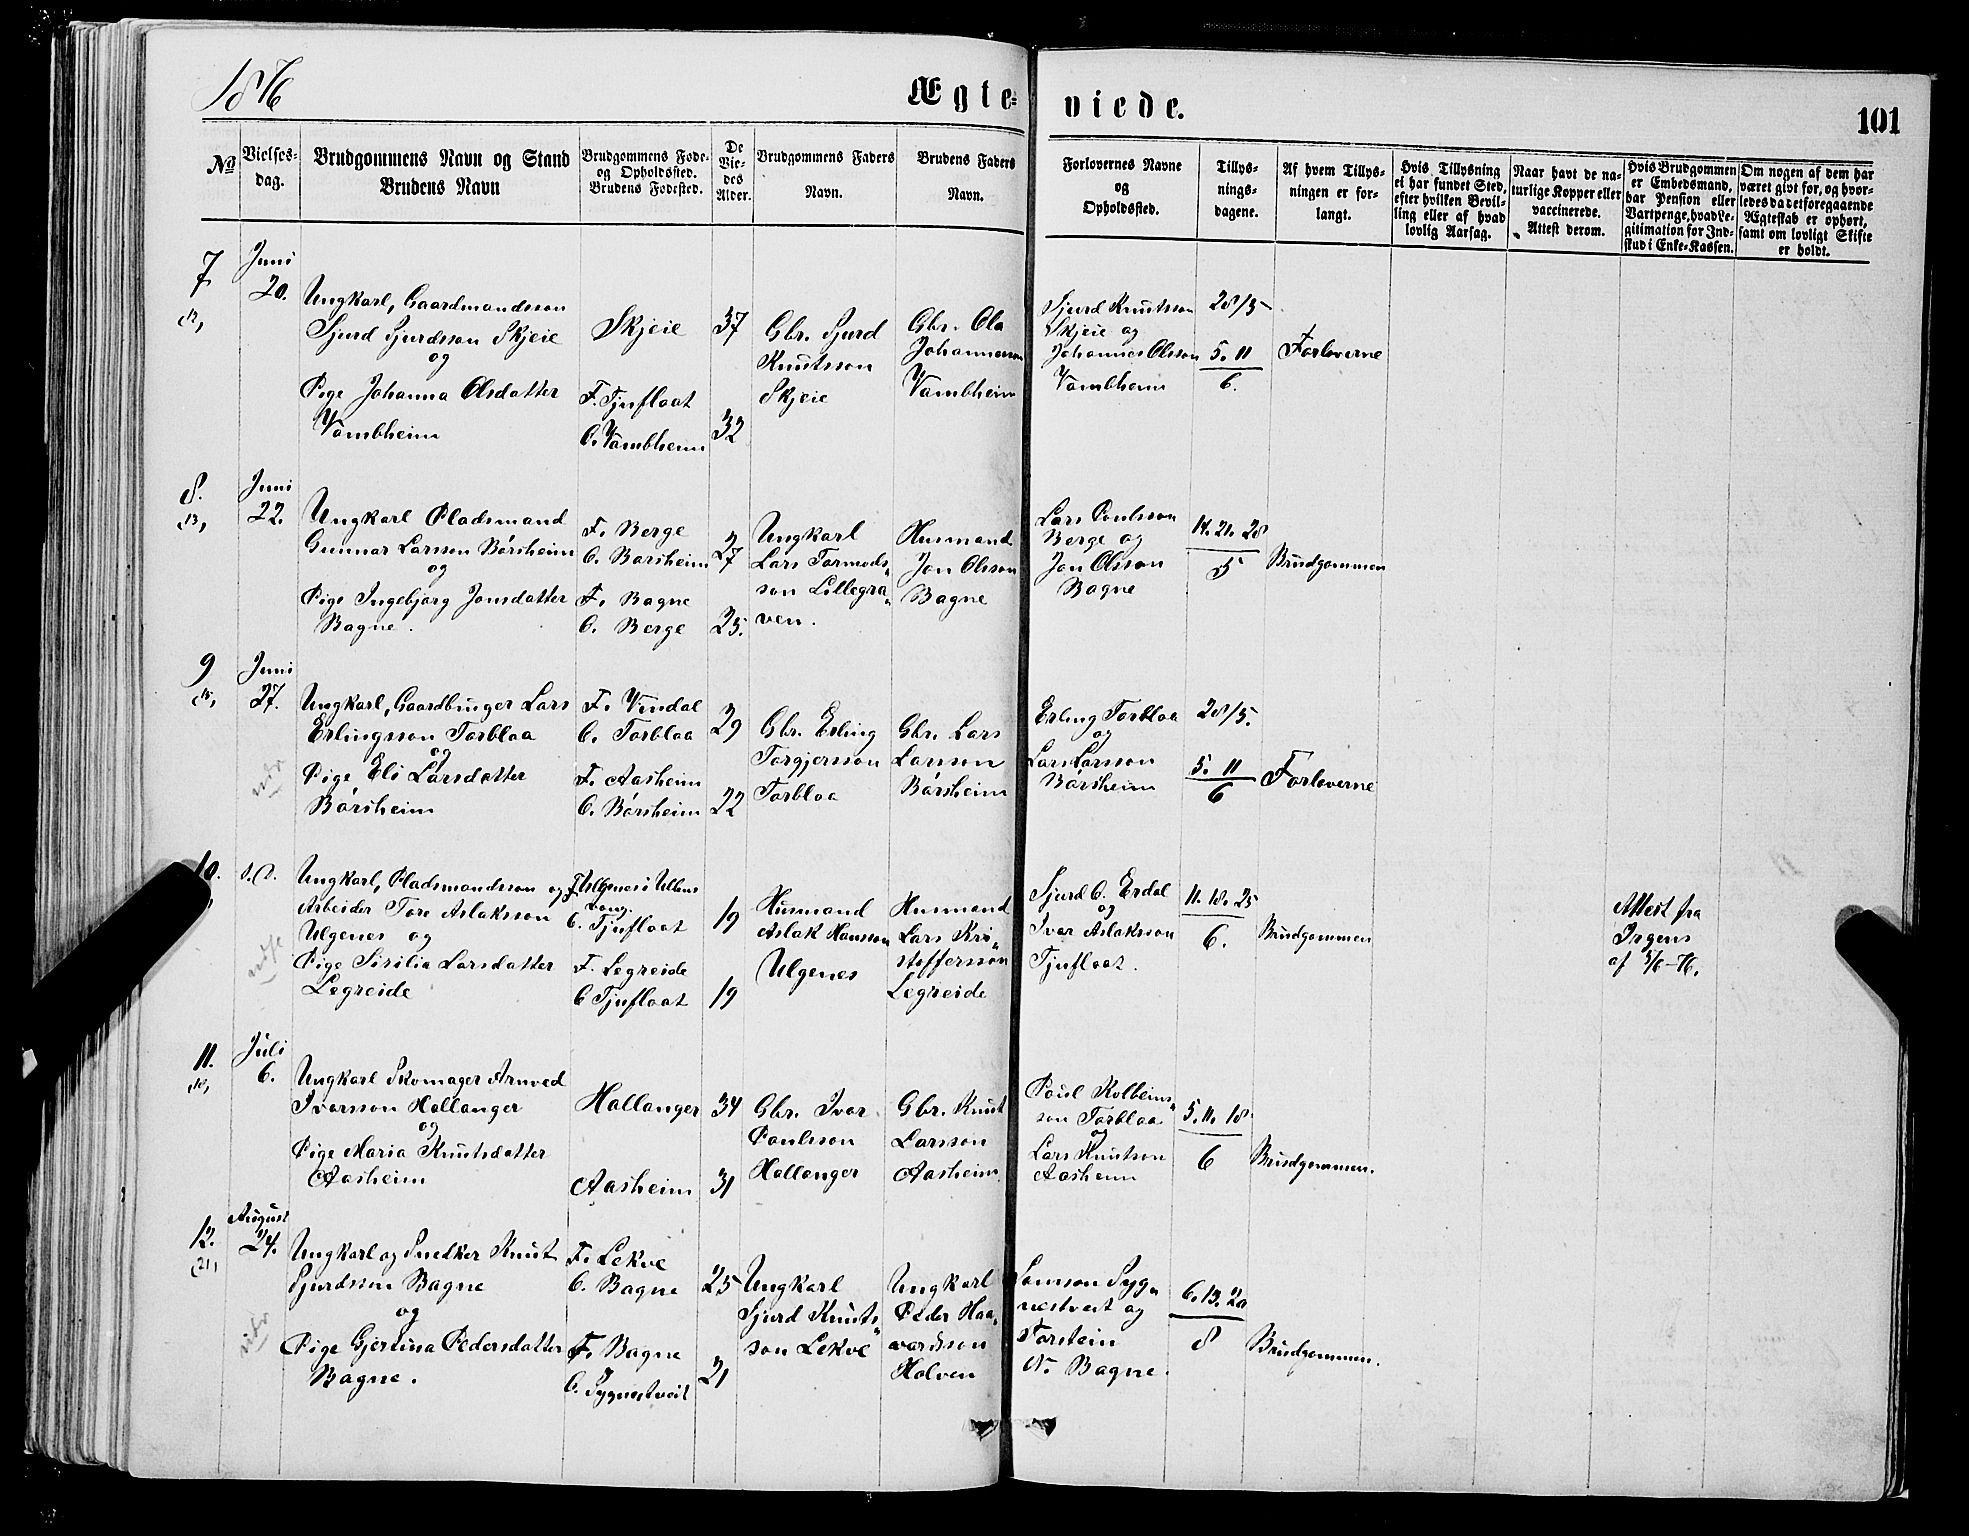 1876
Ægteviede.
101
No
Vielsesdag.
Brudgommens Navn og Stand
Brudens Navn
Brudgommens Føde- og Opholdssted.
Brudens Fødested.
De Viedes Alder.
Brudgommens Faders Navn.
Brudens Faders Navn.
Forlovernes Navne og Opholdssted.
Tillysningsdagene.
Af hvem Tillysningen er forlangt.
Hvis Tillysning ei har fundet Sted, efter hvilken Bevilling eller af hvad lovlig Aarsag.
Naar havt de naturlige Kopper eller vaccinerede. Attest derom.
Hvis Brudgommen er Embedsmand, har Pension eller Vartpenge, hvad Legitimation for Indskud i Enke-Kassen.
Om nogen af dem har været givt før, og hvorledes da det foregaaende Ægteskab er ophørt, samt om lovligt Skifte er holdt.
7
Juni
20.
Ungkarl, Gaardmandsson
Sjurd Sjurdsson Skjeie
og
Pige Johanna Olsdatter
Vambheim
Skjeie
F. Tjuflaat
O. Vambheim
37
32
Gbr. Sjurd
Knutsson
Skjeie
Gbr. Ola
Johannesson
Vambheim
Sjurd Knutsson
Skjeie og
Johannes Olsson
Vambheim
28/5
5. 11
6.
Forloverne
8.
(13)
Juni
22.
Ungkarl Pladsmand
Gunnar Larsson Børsheim
og
Pige Ingebjørg Jonsdatter
Bagne.
F. Berge
O. Børsheim
F. Bagne
O. Berge
27
25.
Ungkarl
Lars Tormods-
son Lillegra-
ven.
Husmand
Jon Olsson
Bagne
Lars Poulsson
Berge og
Jon Olsson
Bagne
14. 21. 28
5
Brudgommen
9
Juni
27.
Ungkarl, Gaardbruger Lars
Erlingsson Torblaa
og
Pige Eli Larsdatter
Børsheim
F. Vindal
O. Torblaa
F. Aasheim
O. Børsheim
29
22
Gbr. Erling
Torgjersson
Torblaa
Gbr. Lars
Larsson
Børsheim
Erling Torblaa
og
Lars Larsson
Børsheim
28/5.
5. 11
6
Forloverne
10.
s.D.
Ungkarl, Pladsmandsson og
Arbeider Tore Aslaksson
Ulgenes og
Pige Sirilia Larsdatter
Legreide
F. Ulgenes i Ullens
vang.
O. Tjuflaat
F. Legreide
O Tjuflaat
19
19
Husmand
Aslak Hansson
Ulgenes
Husmand
Lars Kri-
stoffersson
Legreide
Sjurd O. Erdal
og
Ivar Aslaksson
Tjuflaat.
11. 18. 25
6.
Brudgommen
Attest fra
Irgens
af 5/6-76.
11.
Juli
6.
Ungkarl Skomager Arnved
Ivarsson Hallanger
og
Pige Maria Knutsdatter
Aasheim
Hallanger
Aasheim
34
31
Gbr. Ivar
Poulsson
Hallanger
Gbr. Knut
Larsson
Aasheim
Poul Kolbeins-
son Torblaa
og
Lars Knutson
Aasheim
5. 11. 18
6
Brudgommen.
12.
(21)
August
24.
Ungkarl og Snedker Knut
Sjurdsson Bagne
og
Pige Gjertina Pedersdatter
Bagne.
F. Lekve
O. Bagne
F. Bagne
O. Sygnestveit
25
21
Ungkarl
Sjurd Knuts-
son Lekve
Ungkarl
Peder Haa-
vardsson
Holven
Samson Syg-
nestveit og
Torstein
N. Bagne.
6. 13. 20
8
Brudgommen.